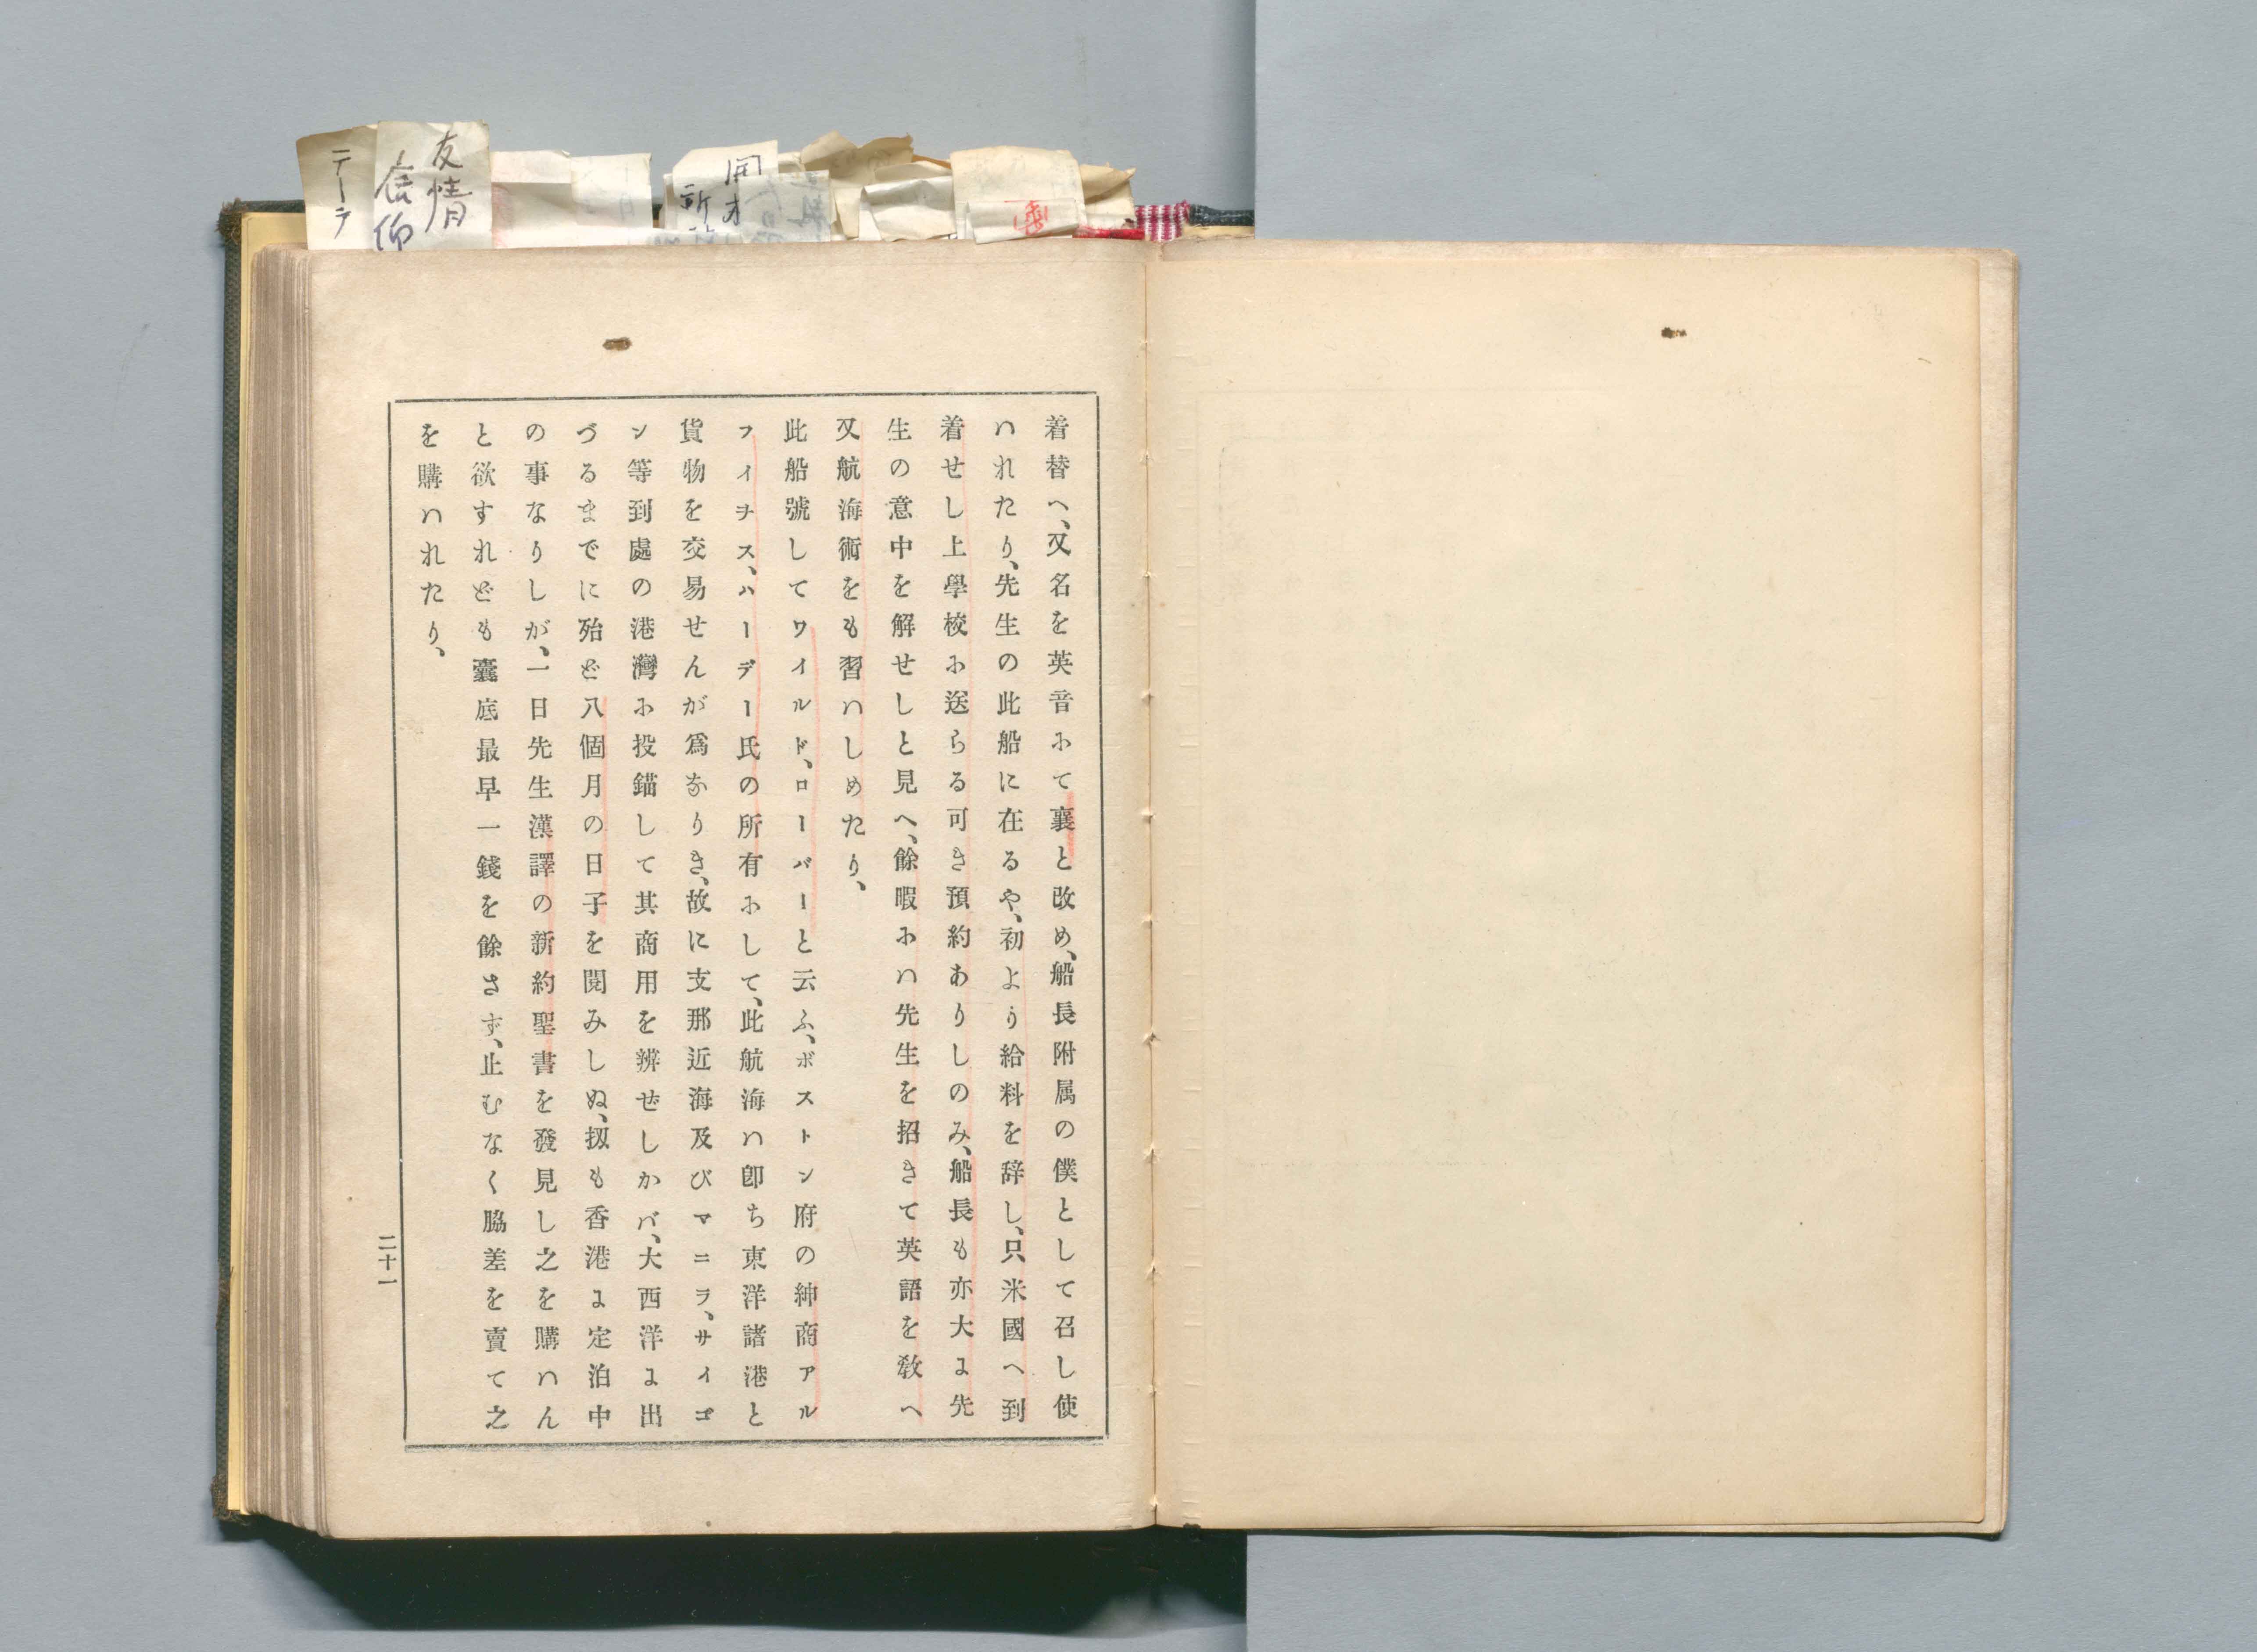 着替へ、又名を英音にて襄と改め、船長附属の僕として召し使
ハれたり、先生の此船に在るや、初より給料を辞し、只米國へ到
着せし上學校に送らる可き預約ありしのみ、船長も亦大に先
生の意中を解せしと見へ、餘暇にハ先生を招きて英語を敎へ
又航海術をも習ハしめたり、
此船號してワイルド、ローバーと云ふ、ボストン府の紳商アル
フィヲス、ハーデー氏の所有にして、此航海ハ卽ち東洋諸港と
貨物を交易せんが爲なりき、故に支那近海及びマニラ、サイゴ
ン等到處の港灣に投錨して其商用を辨ぜしかバ、大西洋に出
づるまでに殆ど八個月の日子を閲みしぬ、扨も香港に定泊中
の事なりしが、一日先生漢譯の新約聖書を發見し之を購ハん
と欲すれども囊底最早一錢を餘さず、止むなく脇差を賣て之
を購ハれたり、
二十一
友情
信仰
テーラ